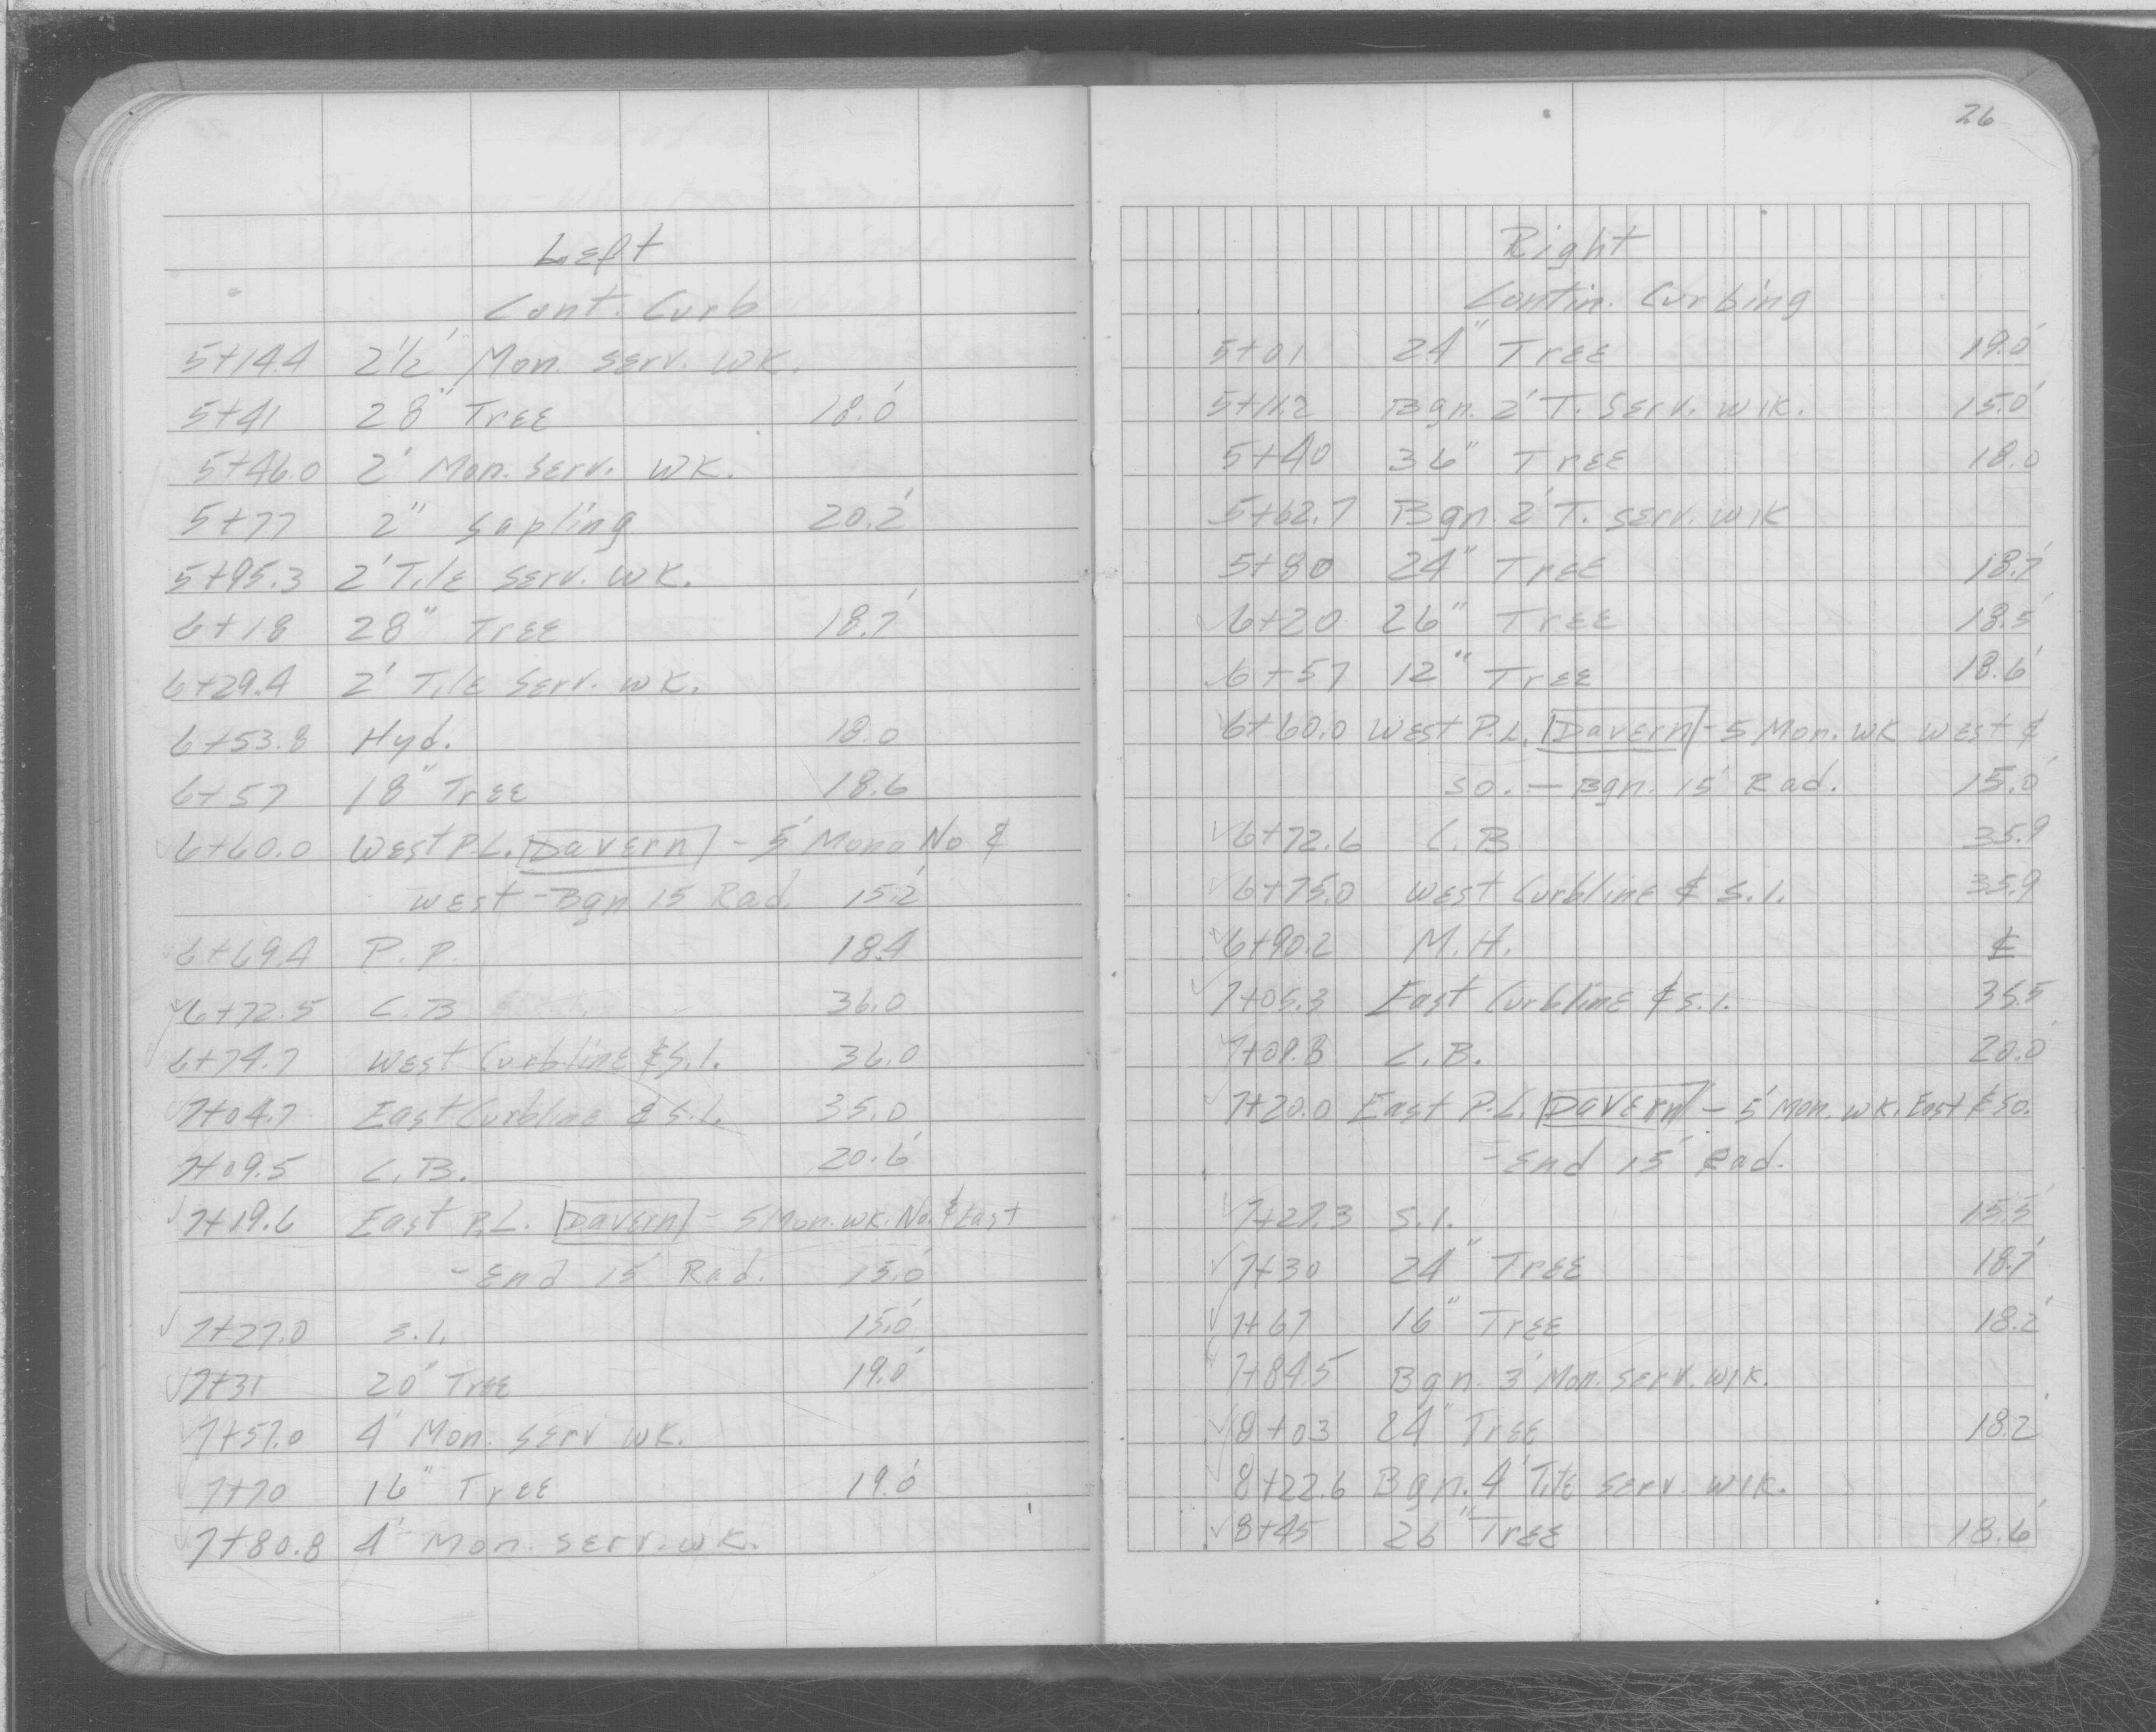 Left
Cont. Curb
5+14.4 2 1/2' Mon. serv. wk.
5+41 28" Tree 18.0'
5+46.0 2' Mon. serv. wk.
5+77 2" Sapling 20.2'
5+95.3 2' Tile serv. wk.
6+18 28" Tree 18.7'
6+29.4 2' Tile serv. wk.
6+53.8 Hyd. 18.0
6+57 18" Tree 18.6'
6+60.0 West P.L. Davern - 5' Mono No &
West - Bgn 15 Rad. 15.2'
6+69.4 P.P. 18.4
6+72.5 C.B 36.0
6+74.7 West Curbline & S.I. 36.0
7+04.7 East Curbline & S.I. 35.0
7+09.5 C.B. 20.6'
7+19.6 East P.L. Davern - 5 Mon. wk. No. & East
- End 15' Rad. 15.0'
7+27.0 S.I. 15.0'
7+31 20" Tree 19.0'
7+57.0 4' Mon. serv wk.
7+70 16" Tree 19.0'
7+80.8 4' Mon. serv. wk.
26
Right
Contin. Curbing
5+01 24" Tree 19.0'
5+11.2 Bgn. 2' T. serv. wlk. 15.0'
5+40 36" Tree 18.0
5+62.7 Bgn. 2' T. serv. wlk
5+80 24" Tree 18.7'
6+20 26" Tree 18.5'
6+57 12" Tree 18.6'
6+60.0 West P.L. Davern - 5 Mon. wk west &
so. - Bgn. 15' Rad. 15.0'
6+72.6 C.B 35.9
6+75.0 West Curbline & S.I. 35.9
6+90.2 M.H. ℄
7+05.3 East Curbline & S.I. 35.5
7+09.8 C.B. 20.0'
7+20.0 East P.L. Davern - 5' Mon. wk. East & So.
- End 15' Rad.
7+27.3 S.I. 15.5'
7+30 24" Tree 18.7'
7+67 16" Tree 18.2'
7+84.5 Bgn. 3' Mon. serv. wlk.
8+03 24" Tree 18.2'
8+22.6 Bgn. 4' Tile serv. wlk.
8+45 26" Tree 18.6'